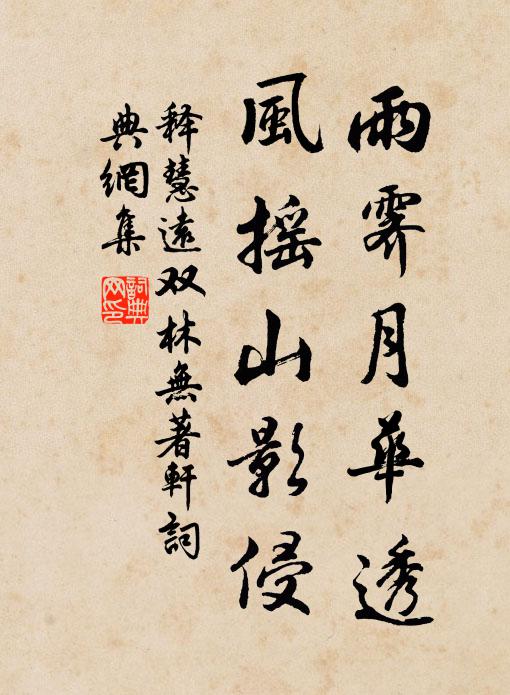 雨霽月華透
風摇山影侵
释慧遠双林無著軒詞
典網集
詞典
网印